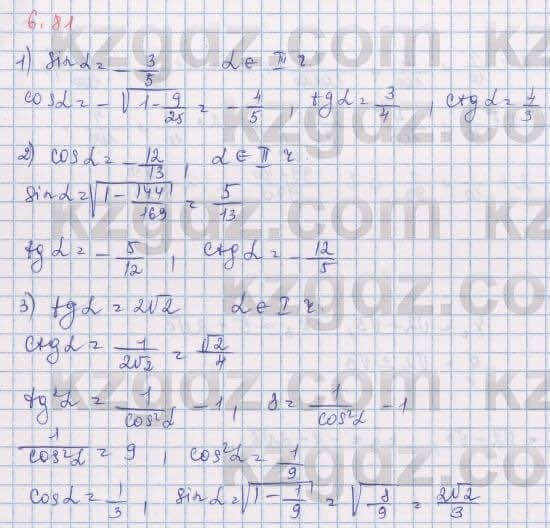 6.81
1) sin α = -3/5   α ∈ III ч
cos α = -√(1 - 9/25) = -4/5 , tg α = 3/4 , ctg α = 4/3
2) cos α = -12/13 , α ∈ II ч.
sin α = √(1 - 144/169) = 5/13
tg α = -5/12 , ctg α = -12/5
3) tg α = 2√2   α ∈ I ч.
ctg α = 1/(2√2) = √2/4
tg²α = 1/cos²α - 1 , 8 = 1/cos²α - 1
1/cos²α = 9 , cos²α = 1/9
cos α = 1/3 , sin α = √(1 - 1/9) = √(8/9) = 2√2/3
kzgdz.com